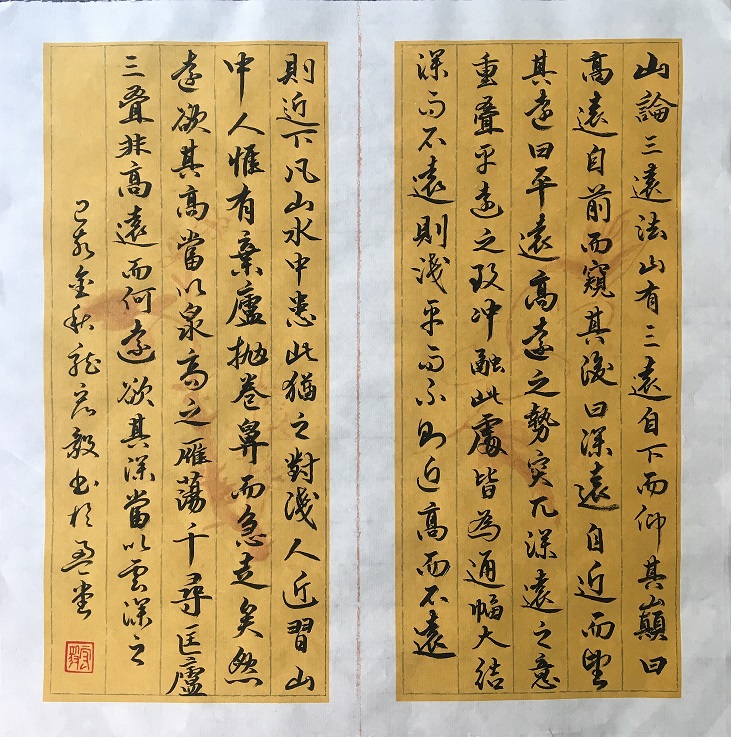 山論三遠法山有三遠自下而仰其山巔曰
高遠自前而窺其後曰深遠自近而望
其遠曰平遠高遠之勢突兀深遠之意
重疊平遠之致冲融此處皆為通幅大結
深而不遠則淺平而不則近高而不遠
則近下凡山水中患此猶之對淺人近習山
中人惟有棄廬抛卷鼻而急走矣然
遠欲其高當以泉高之雁蕩千尋匡廬
三疊非高遠而何遠欲其深當以雲深之
己亥金秋 毅書於